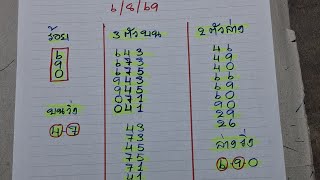 6/8/69
ร้อย
6
9
0
บนวิ่ง
4-7
3 ตัวบน
643
673
675
943
945
071
041
43
73
45
75
71
41
2 ตัวล่าง
46
49
40
69
60
90
29
26
ล่างวิ่ง
6-9-0